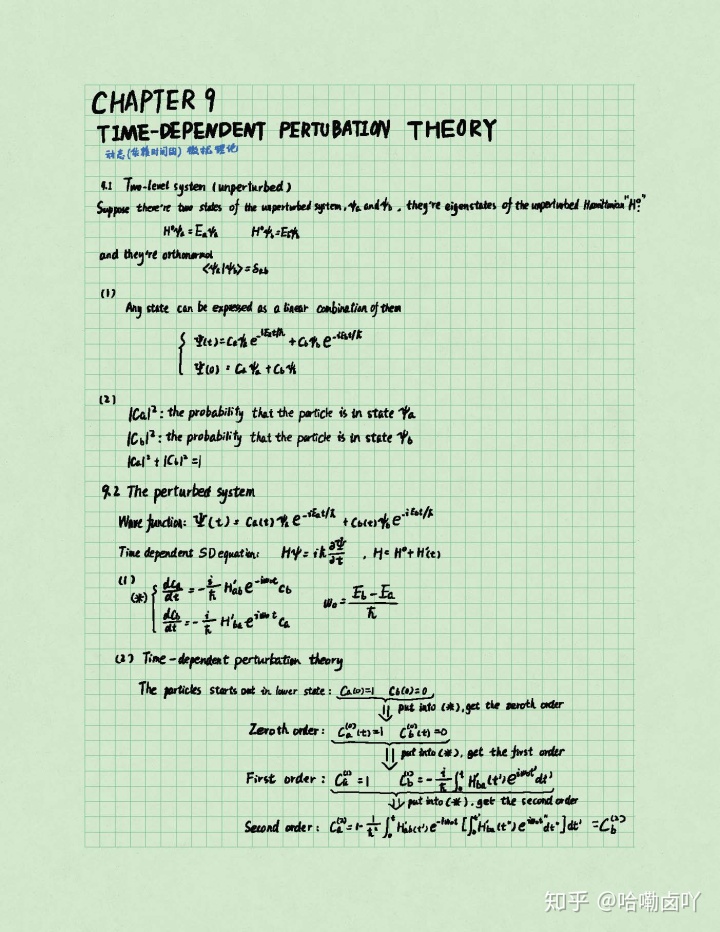 CHAPTER 9
TIME-DEPENDENT PERTUBATION THEORY
动态(依赖时间的) 微扰理论
9.1 Two-level system (unperturbed)
Suppose there're two states of the unperturbed system, ψa and ψb, they're eigenstates of the unperturbed Hamiltonian "H⁰"
H⁰ψa = Eaψa H⁰ψb = Ebψb
and they're orthonormal
⟨ψa|ψb⟩ = δab
(1)
Any state can be expressed as a linear combination of them
Ψ(t) = Caψa e^{-iEat/ħ} + Cbψb e^{-iEbt/ħ}
Ψ(0) = Caψa + Cbψb
(2)
|Ca|²: the probability that the particle is in state ψa
|Cb|²: the probability that the particle is in state ψb
|Ca|² + |Cb|² = 1
9.2 The perturbed system
Wave function: Ψ(t) = Ca(t)ψa e^{-iEat/ħ} + Cb(t)ψb e^{-iEbt/ħ}
Time dependent SD equation: HΨ = iħ ∂Ψ/∂t , H = H⁰ + H'(t)
(1)
(*) dCa/dt = -i/ħ H'ab e^{-iω₀t} Cb ω₀ = (Eb - Ea)/ħ
dCb/dt = -i/ħ H'ba e^{iω₀t} Ca
(2) Time-dependent perturbation theory
The particles starts out in lower state: Ca(0)=1 Cb(0)=0
⇓ put into (*), get the zeroth order
Zeroth order: Ca⁽⁰⁾(t)=1 Cb⁽⁰⁾(t)=0
⇓ put into (*), get the first order
First order: Ca⁽¹⁾ = 1 Cb⁽¹⁾ = -i/ħ ∫₀ᵗ H'ba(t') e^{iω₀t'} dt'
⇓ put into (*), get the second order
Second order: Ca⁽²⁾ = 1 - 1/ħ² ∫₀ᵗ H'ab(t') e^{-iω₀t'} [∫₀ᵗ' H'ba(t'') e^{iω₀t''} dt''] dt' = Cb⁽²⁾
知乎 @哈嘞卤吖